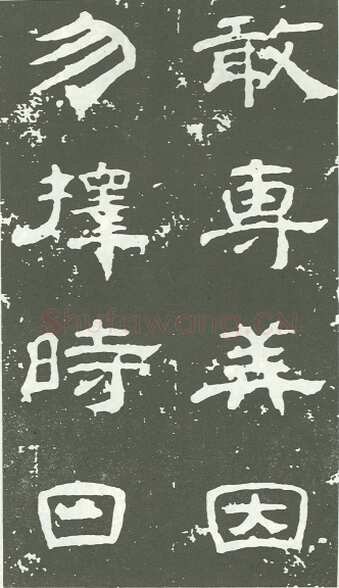 敢專美因
勿擇時日
Shufawang.CN